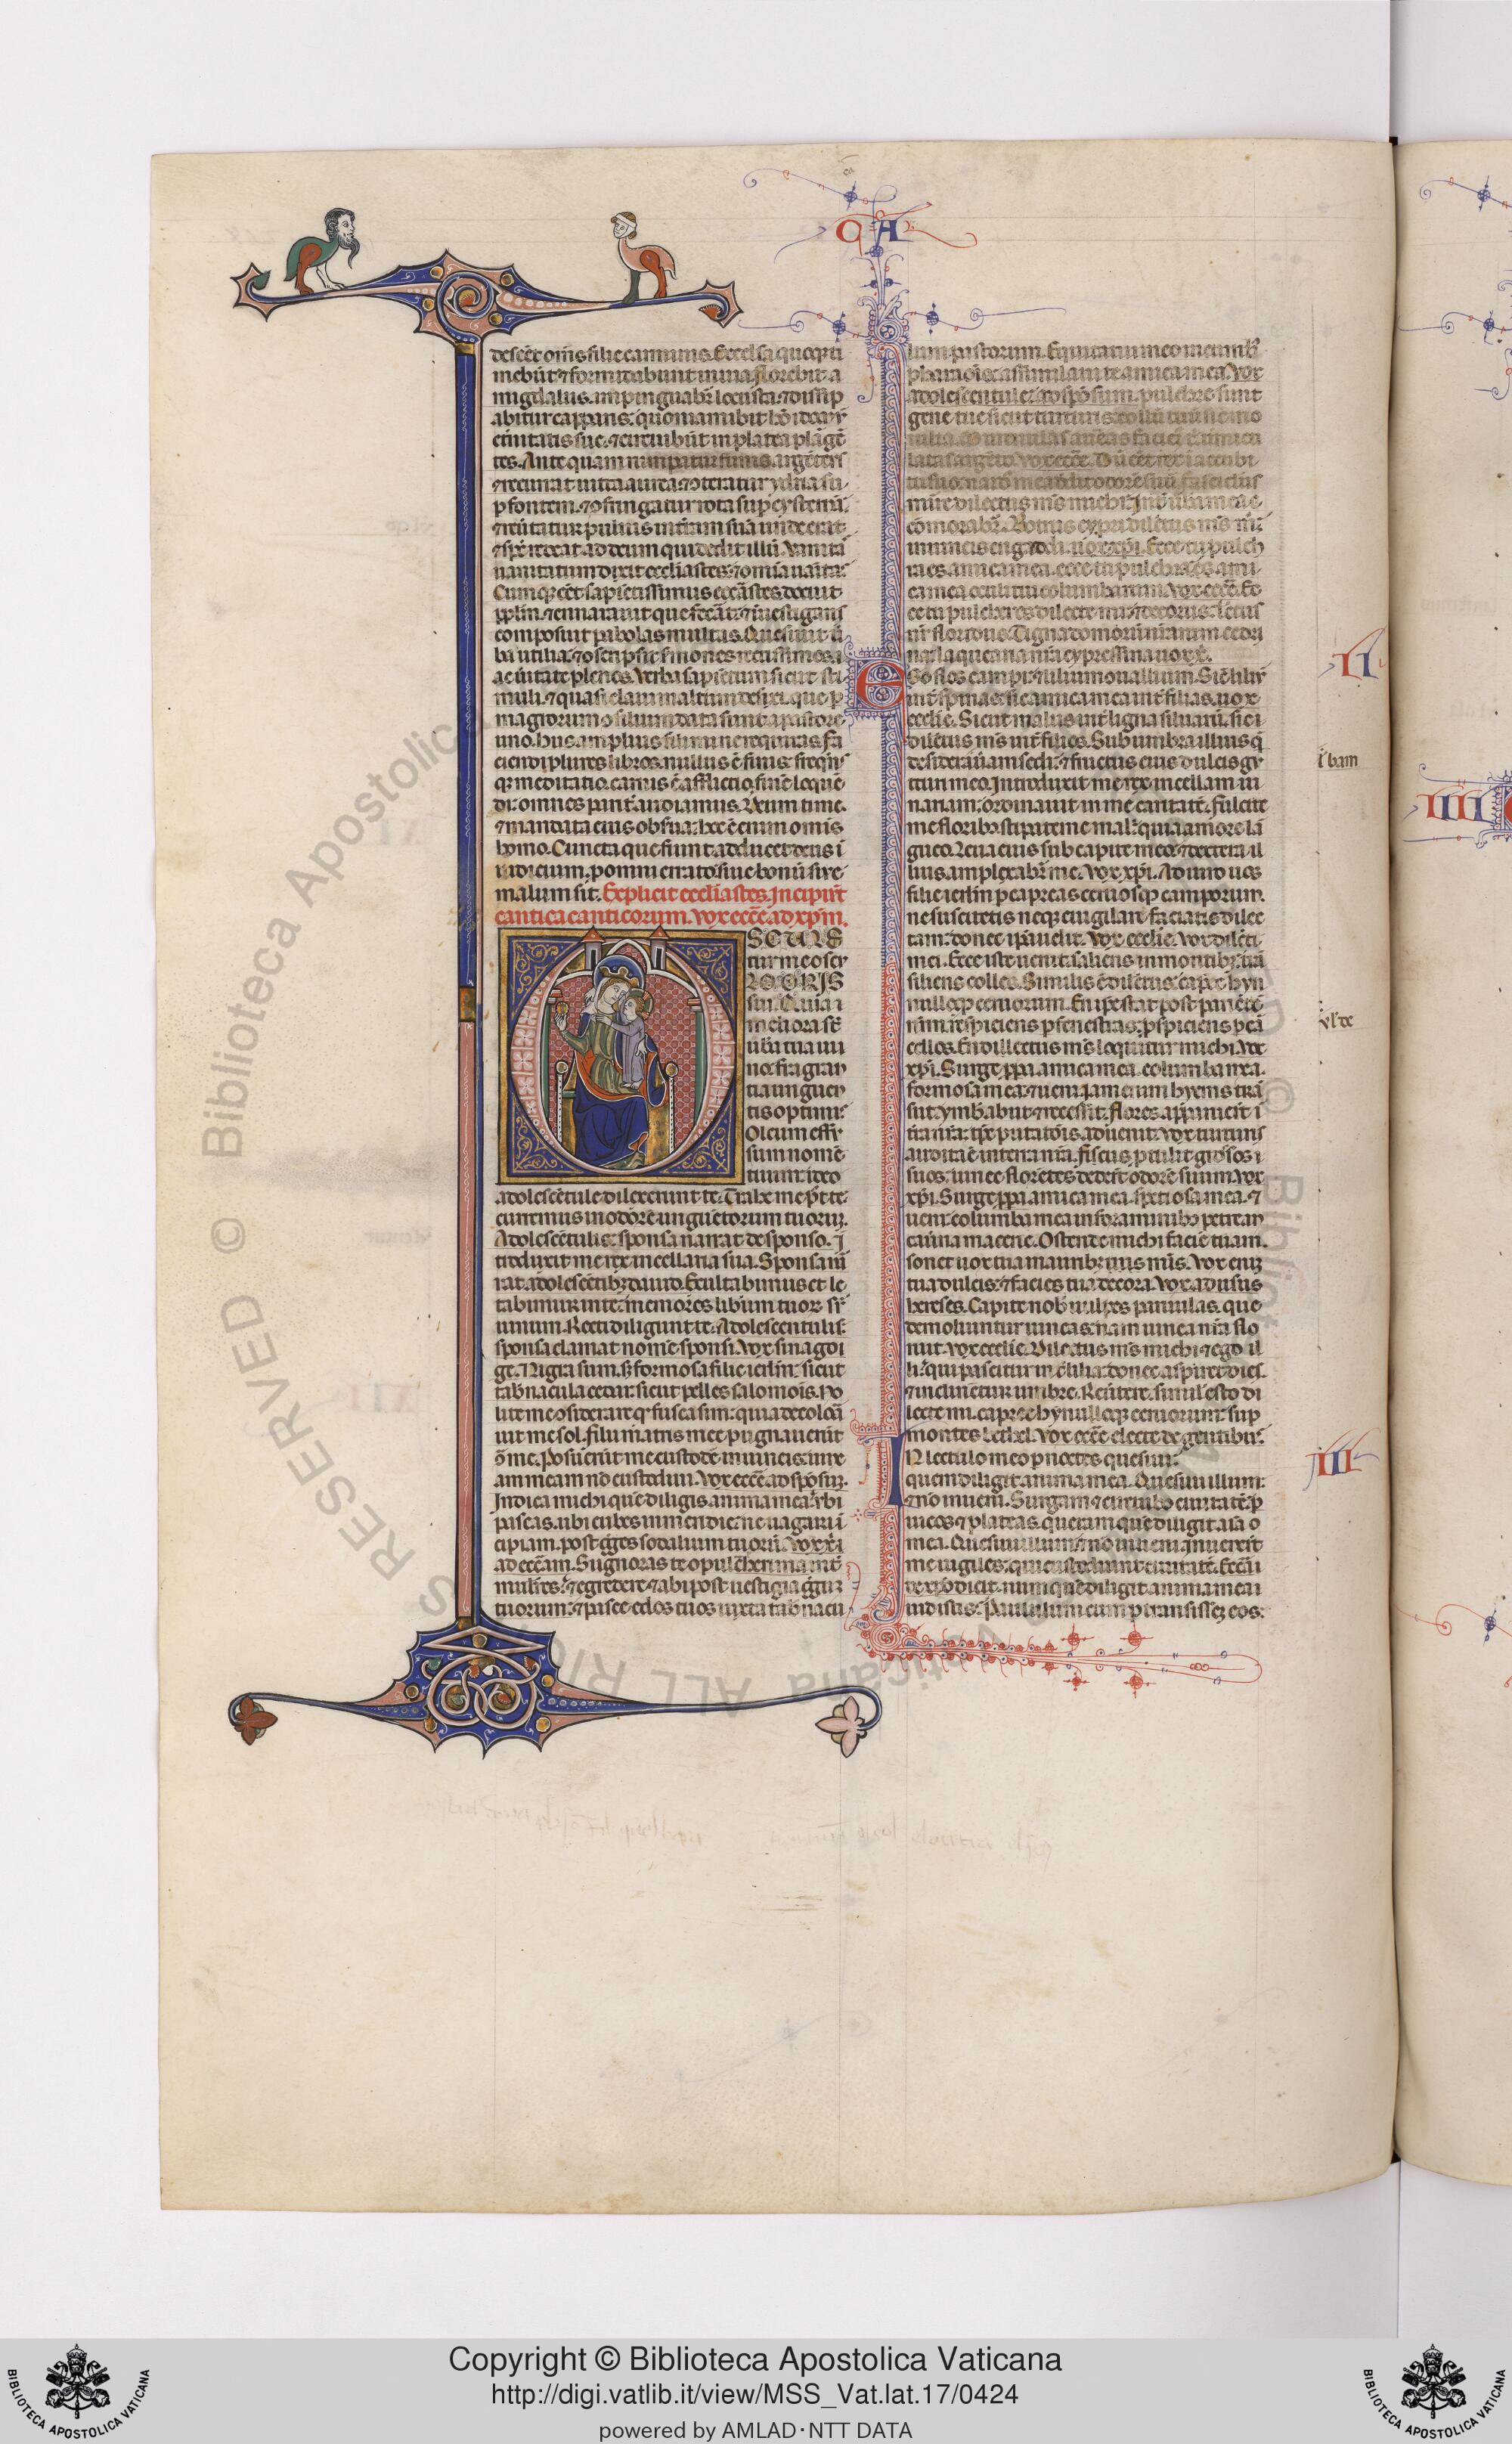 CA
descēt omīs filie carminis. Excelsa quoqꝫ ti
mebūt ⁊ formidabunt in uia. florebit a
migdalus. inpinguabit̄ locusta. ⁊ dissip
abitur capparis. quoniam ibit hō
et̄nitatis sue. ⁊ circuibūt in platea plāgē
tes. Ante quam rumpatur funis argēteꝰ
⁊ recurrat uitta aurea. ⁊ conteratur ydria su
p̄ fontem. ⁊ confringatur rota super cysternā.
⁊ reūtatur puluis in terram suā unde erat
⁊ sp̄c redeat ad deum qui dedit illū. Vanitas
uanitatum dixit ecclesiastes. ⁊ omīa uanitas.
Cumqꝫ eēt sapientissimus ecc̄astes docuit
pplm̄. ⁊ enarrauit que fecāt. ⁊ īuestigans
composuit pabolas multas. Quesiuit ū
ba utilia. ⁊ conscripsit sermones rectissimos.
ac ūitate plenos. Verba sapientum sicut sti
muli. ⁊ quasi claui in altum defixi. que p
magistrorum consilium data sunt a pastore
uno. Hiis amplius fili mi ne requiras. fa
ciendi plures libros nullus ē finis. freqn̄s
qꝫ meditatio. carnis ē afflictio. finē loquē
di. omnes parit̄ audiamus. Deum time.
⁊ mandata eius obserua. hoc ē enim omīs
homo. Cuncta que fiunt. adducet deus ī
iudicium. pro omni errato. siue bonū siue
malum sit. Explicit ecclīastes. Incipiūt
cantica canticorum. Vox ecc̄e ad xp̄m.
OSCULE
tur me oscu
LO ORIS
sui. Quia
meliora sū
ubera tua ui
no. fragran
tia unguen
tis optimis.
Oleum effu
sum nomē
tuum. ideo
adolescētule dilexerunt te. Trahe me pꝰt te
curremus in odorē unguētorum tuorum.
Adolescētulis sponsa narrat de sponso. I
troduxit me rex in cellaria sua. Sponsa
rat adolescētibꝫ. Exultabimus et le
tabimur in te. memores uberum tuoꝝ sꝑ
uinum. Recti diligunt te. Adolescentulis
sponsa clamat nomē sponsi. Vox sinago
ge. Nigra sum. sꝫ formosa filie ierlm̄. sicut
tab̄nacula cedar. sicut pelles salomōis. No
lite me considerare qꝫ fusca sim. quia decolora
uit me sol. filii matris mee pugnauerūt
cō me. Posuerūt me custodē in uineis. uine
am meam nō custodiui. Vox ecc̄e ad sponsum.
Indica michi quē diligis anima mea. ubi
pascas. ubi cubes in meridie. ne uagari ī
cipiam. post greges sodalium tuorū. Vox xp̄i
ad ecc̄am. Si ignoras te o pulcherrima int̄
mulieres. egredere ⁊ abi post uestigia gregum
tuorum. ⁊ pasce edos tuos iuxta tab̄nacu
lum pastorum. Equitatui meo in currib̄
pharaonis assimilaui te amica mea. Vox
adolescentule ad sponsum. Pulchre sunt
gene tue sicut turturis. collū tuū sic mo
nilia. Murenulas aureas faciem̄. uermicu
latas argēto. Vox ecc̄e. Dū eēt rex ī accubi
tu suo. nardꝰ mea dedit odorē suū. fasciculus
mirre dilectus mꝰs michi. Int̄ ubera mea
cōmorabit̄. Botrus cypri dilectus mꝰs m̄
in uineis engaddi. uox xp̄i. Ecce tu pulch
ra es amica mea. ecce tu pulchra es. ami
ca mea. oculi tui columbarum. Vox ecc̄e. Ec
ce tu pulcher es dilecte mi. ⁊ decorus. lectus
nr̄ floridus. Tigna domorū nr̄arum cedri
na. laquearia nr̄a cypressina. uox x.
Ego flos campi. ⁊ lilium conuallium. Sic liliū
int̄ spinas. sic amica mea int̄ filias. uox
ecclīe. Sicut malus int̄ ligna siluarū. sic
dilectus mꝰs int̄ filios. Sub umbra illius q̄
desideraūam sedi. ⁊ fructus eius dulcis gu
tturi meo. Introduxit me rex in cellam ui
nariam. ordinauit in me caritatē. fulcite
me floribꝫ. stipate me malis. quia amore lā
gueo. Leua eius sub capite meo. ⁊ dextera il
lius amplexabit̄ me. Vox xp̄i. Adiuro uos
filie ierlm̄ p capreas ceruosqꝫ camporum.
ne suscitetis neqꝫ euigilare faciatis dilec
tam. donec ip̄a uelit. Vox ecclīe. Vox dilecti
mei. Ecce iste uenit. saliens in montibꝫ. trā
siliens colles. Similis ē dilectus capree hyn
nuloqꝫ ceruorum. En ip̄e stat post parietē
nr̄m. respiciens p fenestras. pspiciens p cā
cellos. En dillectus mꝰs loquitur michi. Vox
xp̄i. Surge ppa amica mea. columba mea.
formosa mea. ⁊ ueni. Iam enim hyems trā
siit. ymber abiit ⁊ recessit. flores apparuerūt ī
terra nr̄a. tp̄s putatōis aduenit. Vox turturis
audita ē in terra nr̄a. ficus ptulit grossos
suos. uinee florētes dederūt odorē suum. Vox
xp̄i. Surge ppa amica mea. speciosa mea. ⁊
ueni. columba mea in foraminibꝫ petre. in
cauerna macerie. Ostende michi faciē tuam.
sonet uox tua in auribꝫ. Vox enim
tua dulcis. ⁊ facies tua decora. Vox aduersus
hereses. Capite nob̄ uulpes paruulas. que
demoliuntur uineas. nam uinea nr̄a flo
ruit. Vox ecclīe. Dilectus mꝰs michi ⁊ ego il
li. qui pascitur int̄ lilia. donec aspiret dies.
⁊ inclinētur umbre. Reuertere. similis esto di
lecte mi. capree hynulloqꝫ ceruorum. sup
montes bethel. Vox ecc̄e electe de gentibus.
IN lectulo meo p noctes quesiui
quem diligit anima mea. Quesiui illum.
⁊ nō inueni. Surgam ⁊ circuibo ciuitatē. p
uicos ⁊ plateas. queram quē diligit aīa
mea. Quesiui illum. ⁊ nō inueni. Inuenerūt
me uigiles. qui custodiunt ciuitatē. Ecc̄a
de xp̄o dicit. num quē diligit anima mea
uidistis. Paululum cum ptransissem eos.
II
ubam
III
IIII
Copyright © Biblioteca Apostolica Vaticana
http://digi.vatlib.it/view/MSS_Vat.lat.17/0424
powered by AMLAD·NTT DATA
BIBLIOTECA APOSTOLICA VATICANA
BIBLIOTECA APOSTOLICA VATICANA